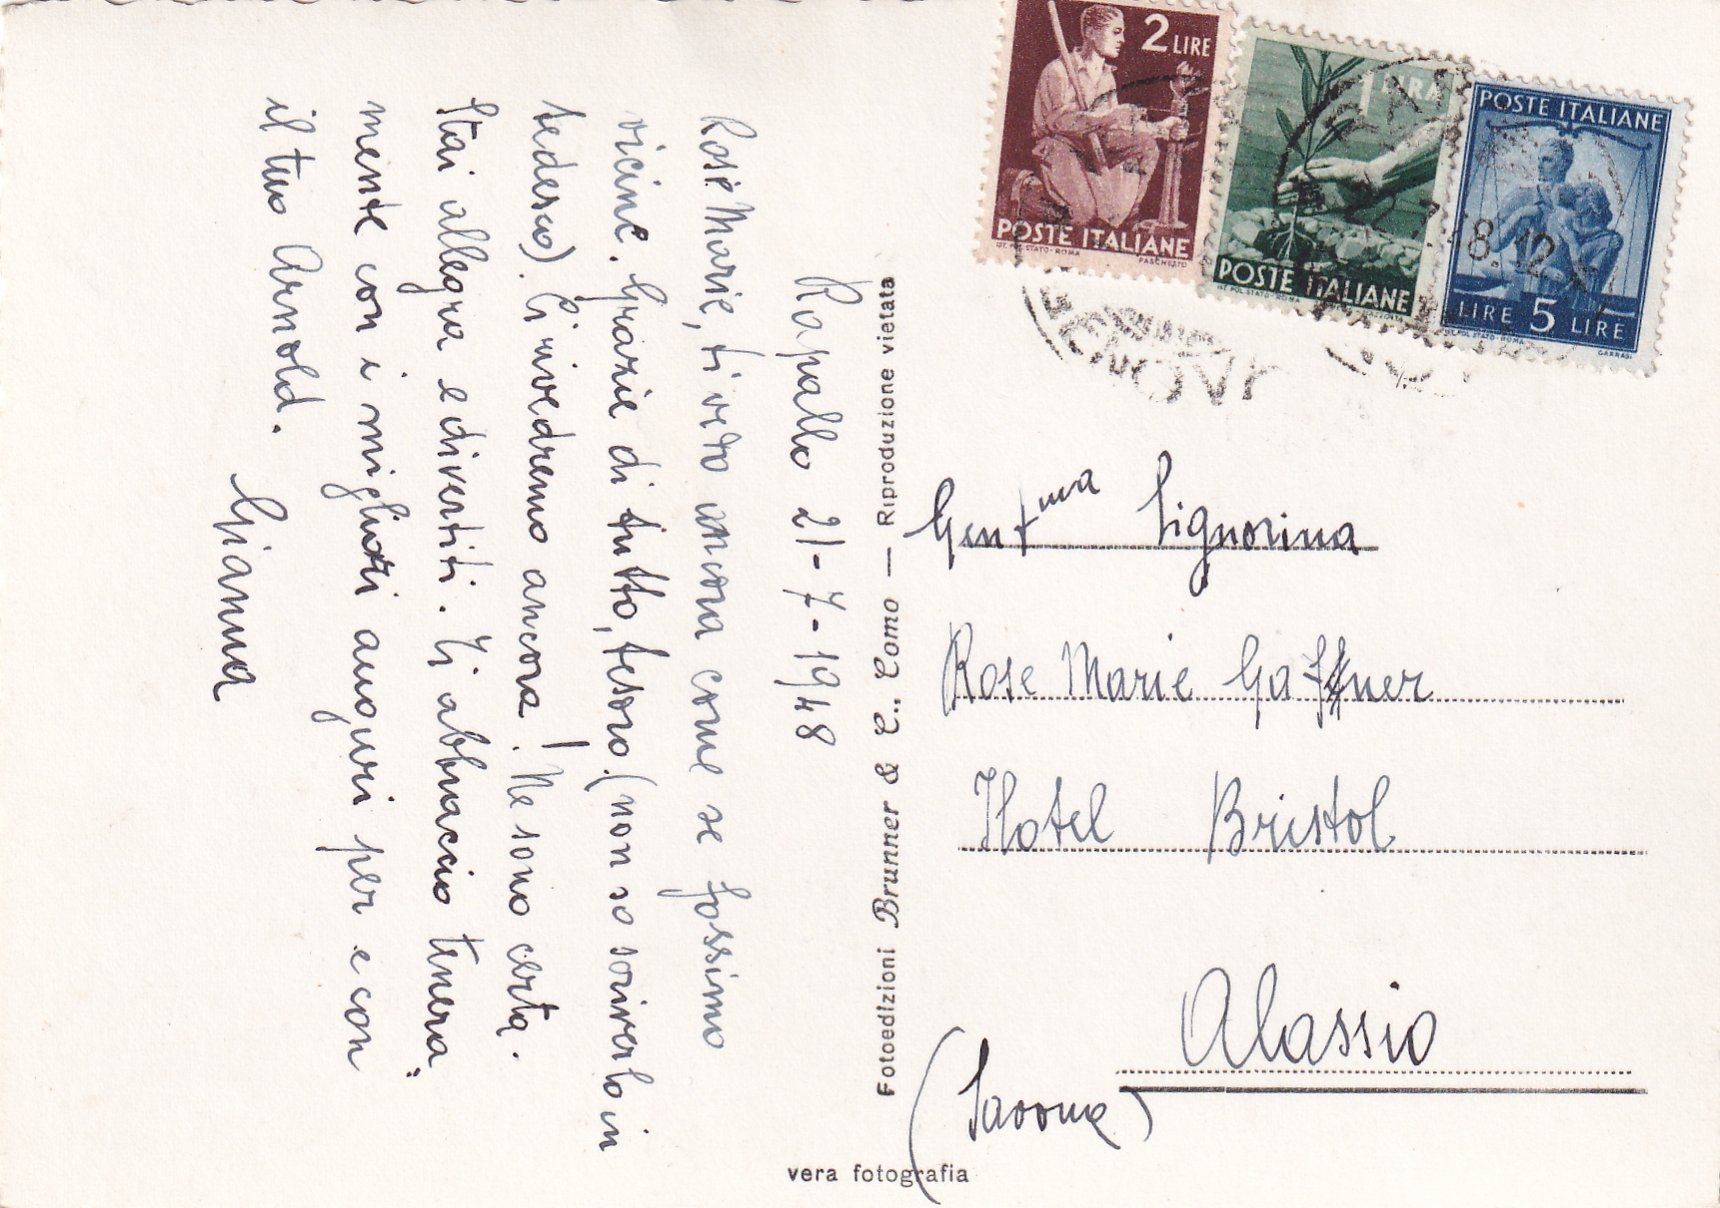 Rapallo 21-7-1948
Rose Marie, ti vedo ancora come se fossimo
vicine. Grazie di tutto, tesoro. (non so scriverlo in
tedesco). Ci rivedremo ancora! Ne sono certa.
Stai allegra e divertiti. Ti abbraccio tenera„
mente con i migliori auguri per e con
il tuo Arnold.
Gianna
Fotoedizioni Brunner & C., Como — Riproduzione vietata
vera fotografia
2 LIRE
POSTE ITALIANE
IST. POL. STATO - ROMA PASCHETTO
1 LIRA
POSTE ITALIANE
IST. POL. STATO - ROMA
POSTE ITALIANE
LIRE 5 LIRE
IST. POL. STATO - ROMA GARRASI
GENOVA
22.7. 8.12
Gentma Signorina
Rose Marie Gaffner
Hotel Bristol
Alassio
(Savona)